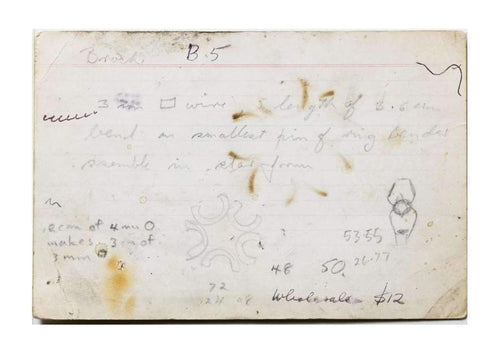 Brooch B.5
3 mm □ wire length of 8.6 cm
bend on smallest pin of ring bender
assemble in star form
2 cm of 4 mm O
makes 3 of
3 mm
53 55
48 50. 26.77
72
Wholesale $12